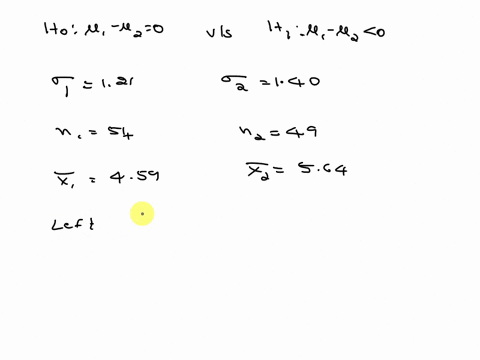 H₀: μ₁ - μ₂ = 0 v/s H₁: μ₁ - μ₂ < 0
σ₁ = 1.21 σ₂ = 1.40
n₁ = 54 n₂ = 49
x̄₁ = 4.59 x̄₂ = 5.64
Left